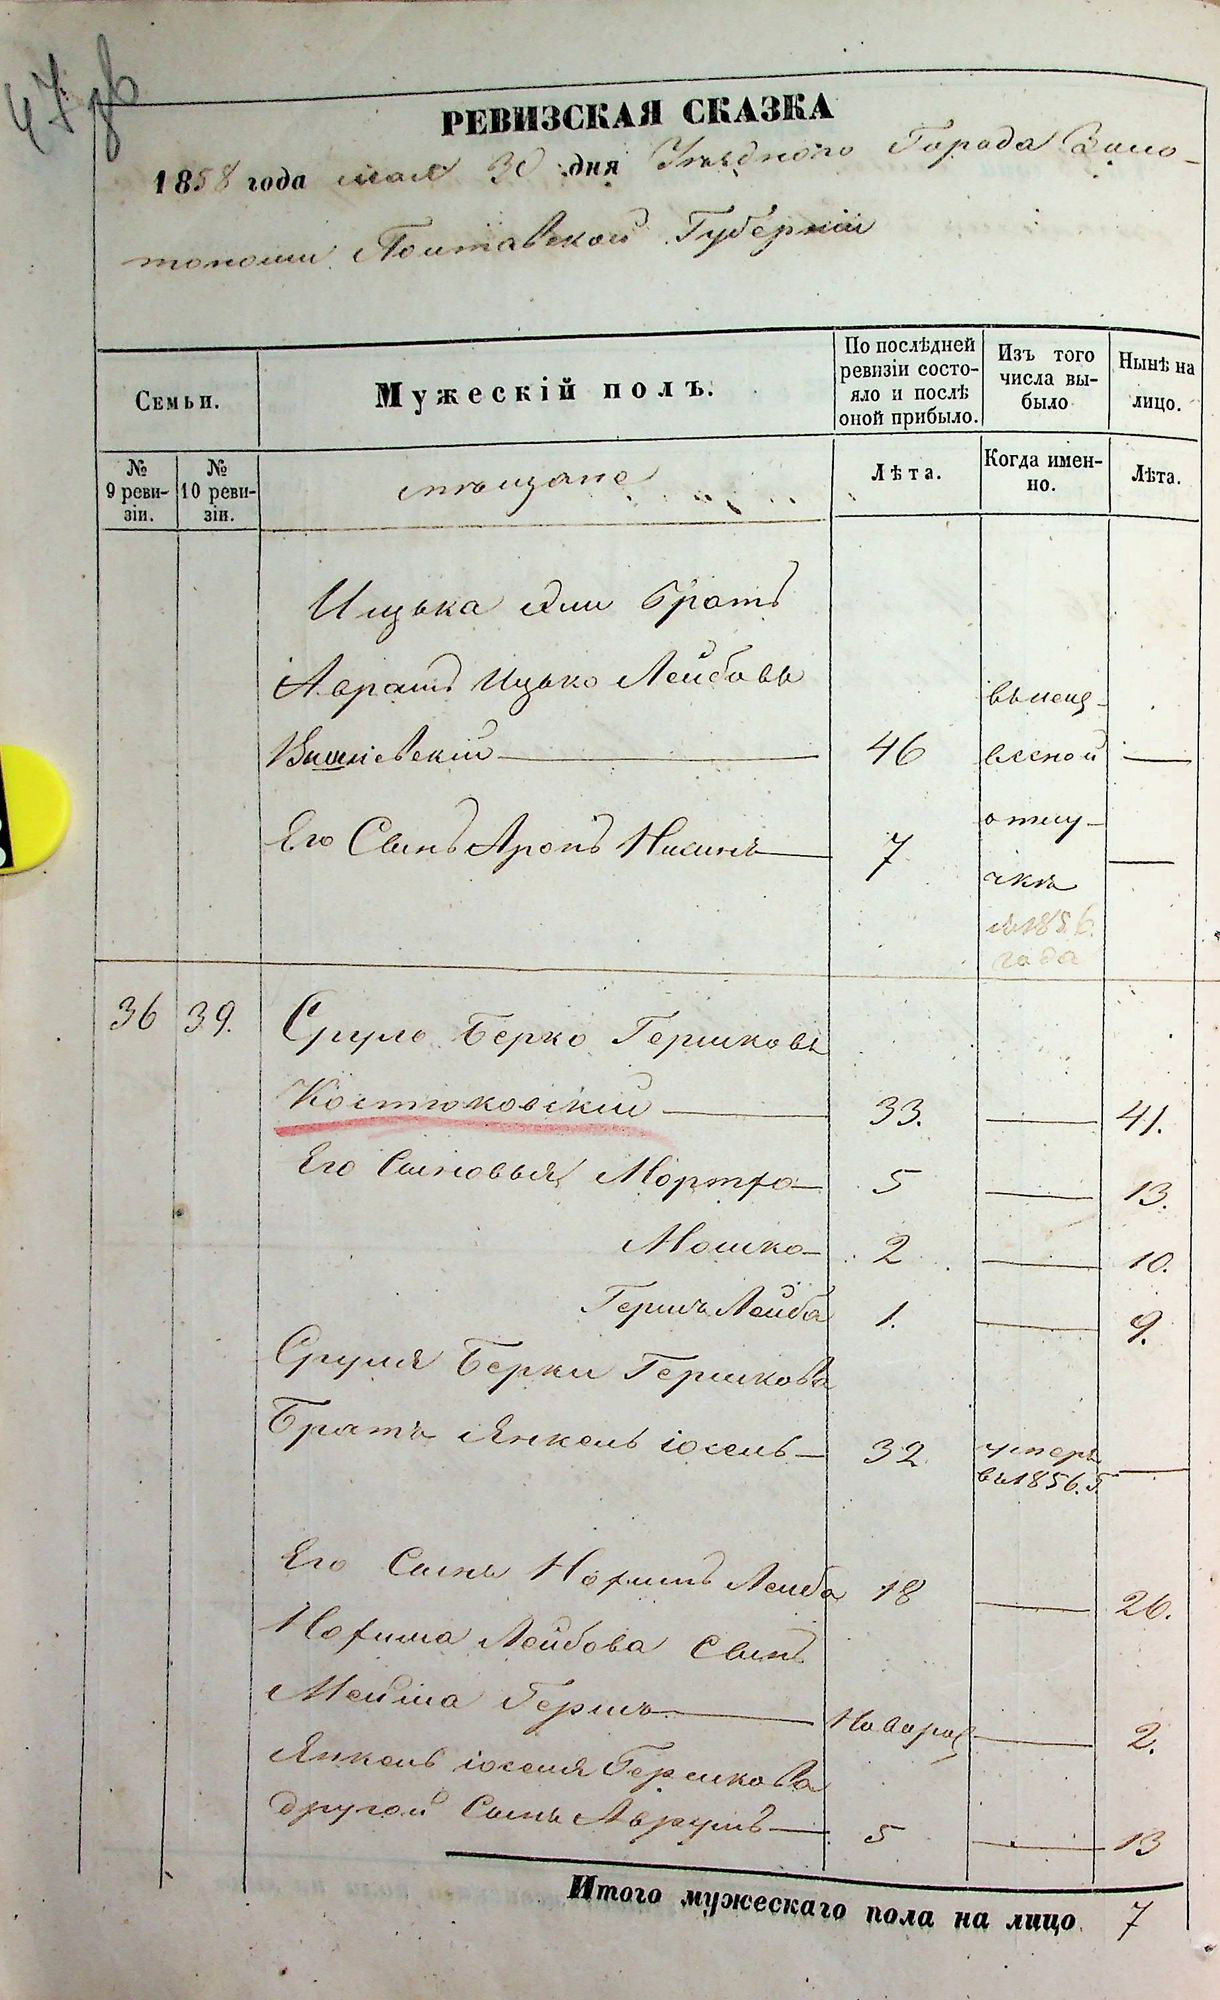 47 об
РЕВИЗСКАЯ СКАЗКА
1858 года мая 30 дня Уѣзднаго Города Золо-
тоноши Полтавской Губерніи
Семьи.
Мужескій полъ.
По послѣдней ревизіи состо-яло и послѣ оной прибыло.
Изъ того числа вы-было
Нынѣ на лицо.
№ 9 реви-зіи.
№ 10 реви-зіи.
мѣщане
Лѣта.
Когда имен-но.
Лѣта.
Ицька братъ
Аврамъ Ицько Лейбовъ
Вишневскій 46
Его Сынъ Аронъ 7
въ
отлу-
чкѣ
1856.
года
36 39. Сруль Берко Гершковъ
Костюковскій 33. 41.
Его Сыновья Мортхо 5 13.
Мошко 2 10.
Гершъ Лейба 1. 9.
Сруля Берки Гершкова
Братъ Янкель іосель 32 умеръ
въ 1856. г.
Его Сынъ Нохимъ Лейба 18 26.
Нохима Лейбова Сынъ
Мейша Гершъ Новорож 2.
Янкель іоселя Гершкова
другой Сынъ Аврумъ 5 13
Итого мужескаго пола на лицо 7